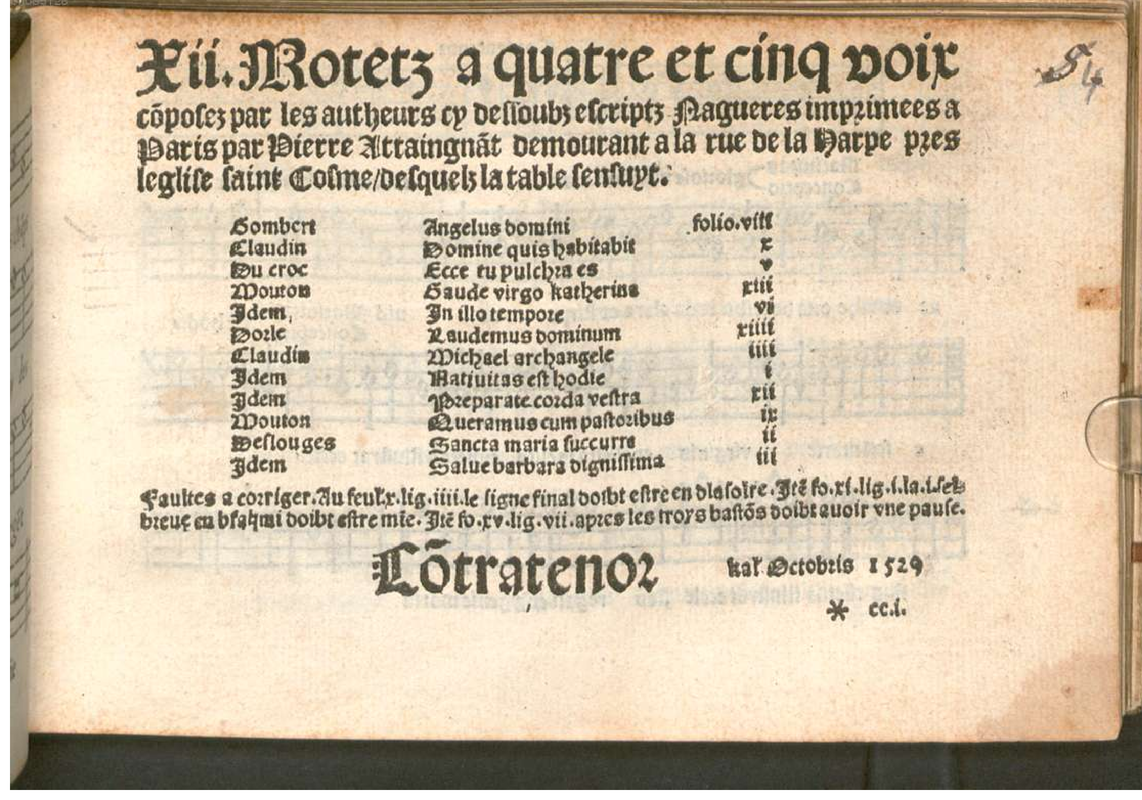 Xii. Motetz a quatre et cinq voix
cõposez par les autheurs cy dessoubz escriptz Nagueres imprimees a
Paris par Pierre Attaingnãt demourant a la rue de la Harpe pres
leglise saint Cosme/desquelz la table sensuyt.
Gombert Angelus domini folio.viii
Claudin Domine quis habitabit x
Du croc Ecce tu pulchra es v
Mouton Gaude virgo katherina xiii
Idem In illo tempore vi
Dorle Laudemus dominum xiiii
Claudin Michael archangele iiii
Idem Natiuitas est hodie i
Idem Preparate corda vestra xii
Mouton Queramus cum pastoribus ix
Deslouges Sancta maria succurre ii
Idem Salue barbara dignissima iii
Faultes a corriger. Au feul.x.lig.iiii.le signe final doibt estre en dlasolre. Itẽ fo.xi.lig.i.la.i.
breue en bfahmi doibt estre mie. Itẽ fo.xv.lig.vii.apres les troys bastõs doibt auoir vne pause.
Cõtratenor kal Octobris 1529
* cc.i.